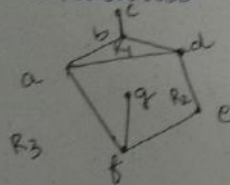 c
b
R1
d
a
g
R2
e
R3
f